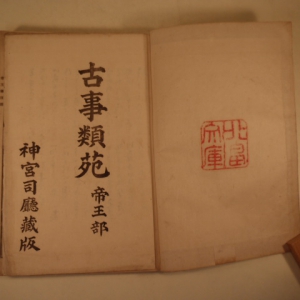 古事類苑
帝王部
神宮司廳藏版